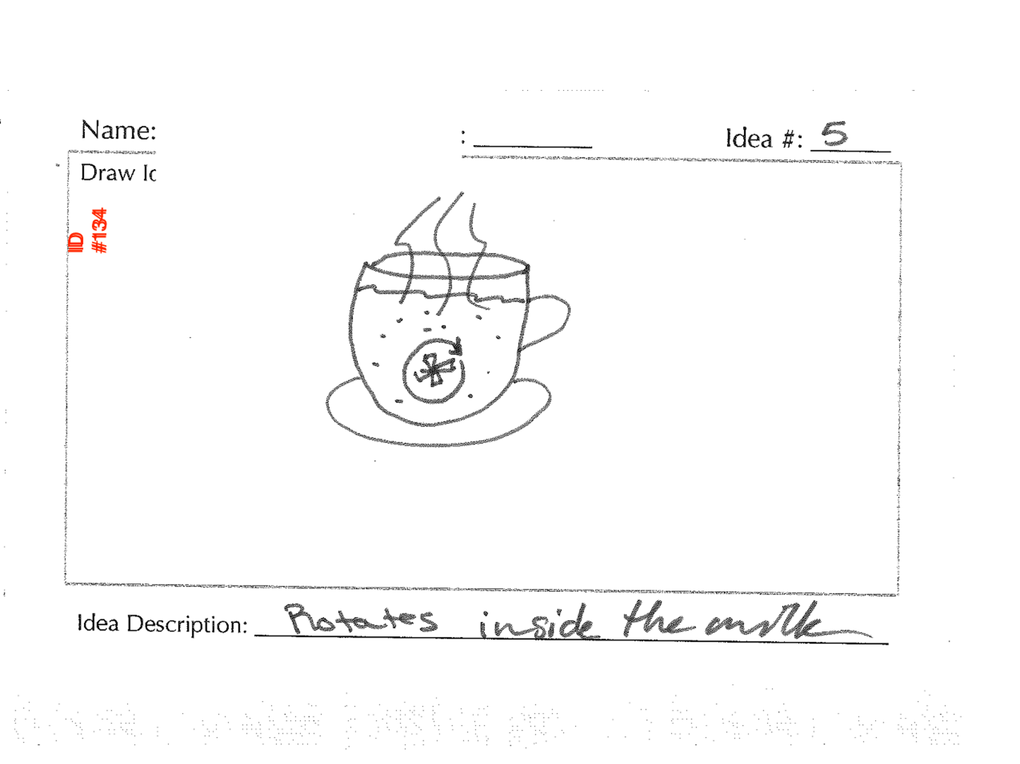 Name:
: Idea #: 5
Draw Id
ID
#134
Idea Description: Rotates inside the milk